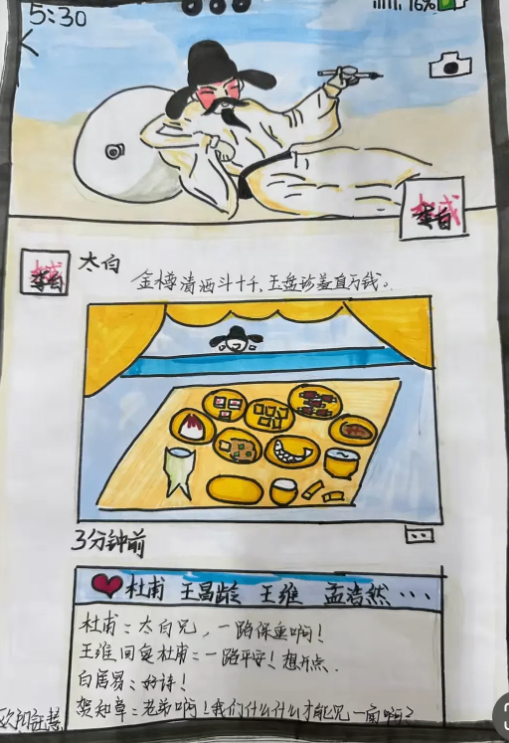 5:30
16%
李白
李白
太白
金樽清洒斗十千,玉盘珍羞直万钱。
3分钟前
杜甫 王昌龄 王维 孟浩然···
杜甫:太白兄,一路保重啊!
王维回复杜甫:一路平安!想开点.
白居易:好诗!
贺知章:老弟啊!我们什么什么才能见一面啊?